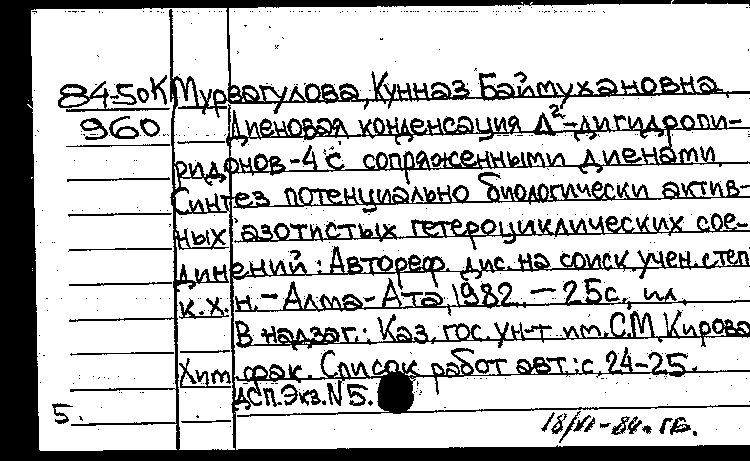 84-5оК Мурзагулова, Кунназ Баймухановна.
960 Диеновая конденсация Δ²-дигидропи-
ридонов-4 с сопряженными диенами.
Синтез потенциально биологически актив-
ных азотистых гетероциклических сое-
динений: Автореф. дис. на соиск. учен. степ.
к.х.н. - Алма-Ата, 1982. - 25с., ил.
В надзаг.: Каз. гос. ун-т им. С.М. Кирова
Хим. фак. Список работ авт.: с. 24-25.
ДСП. Экз. N 5.
5.
18/VI-84. гв.